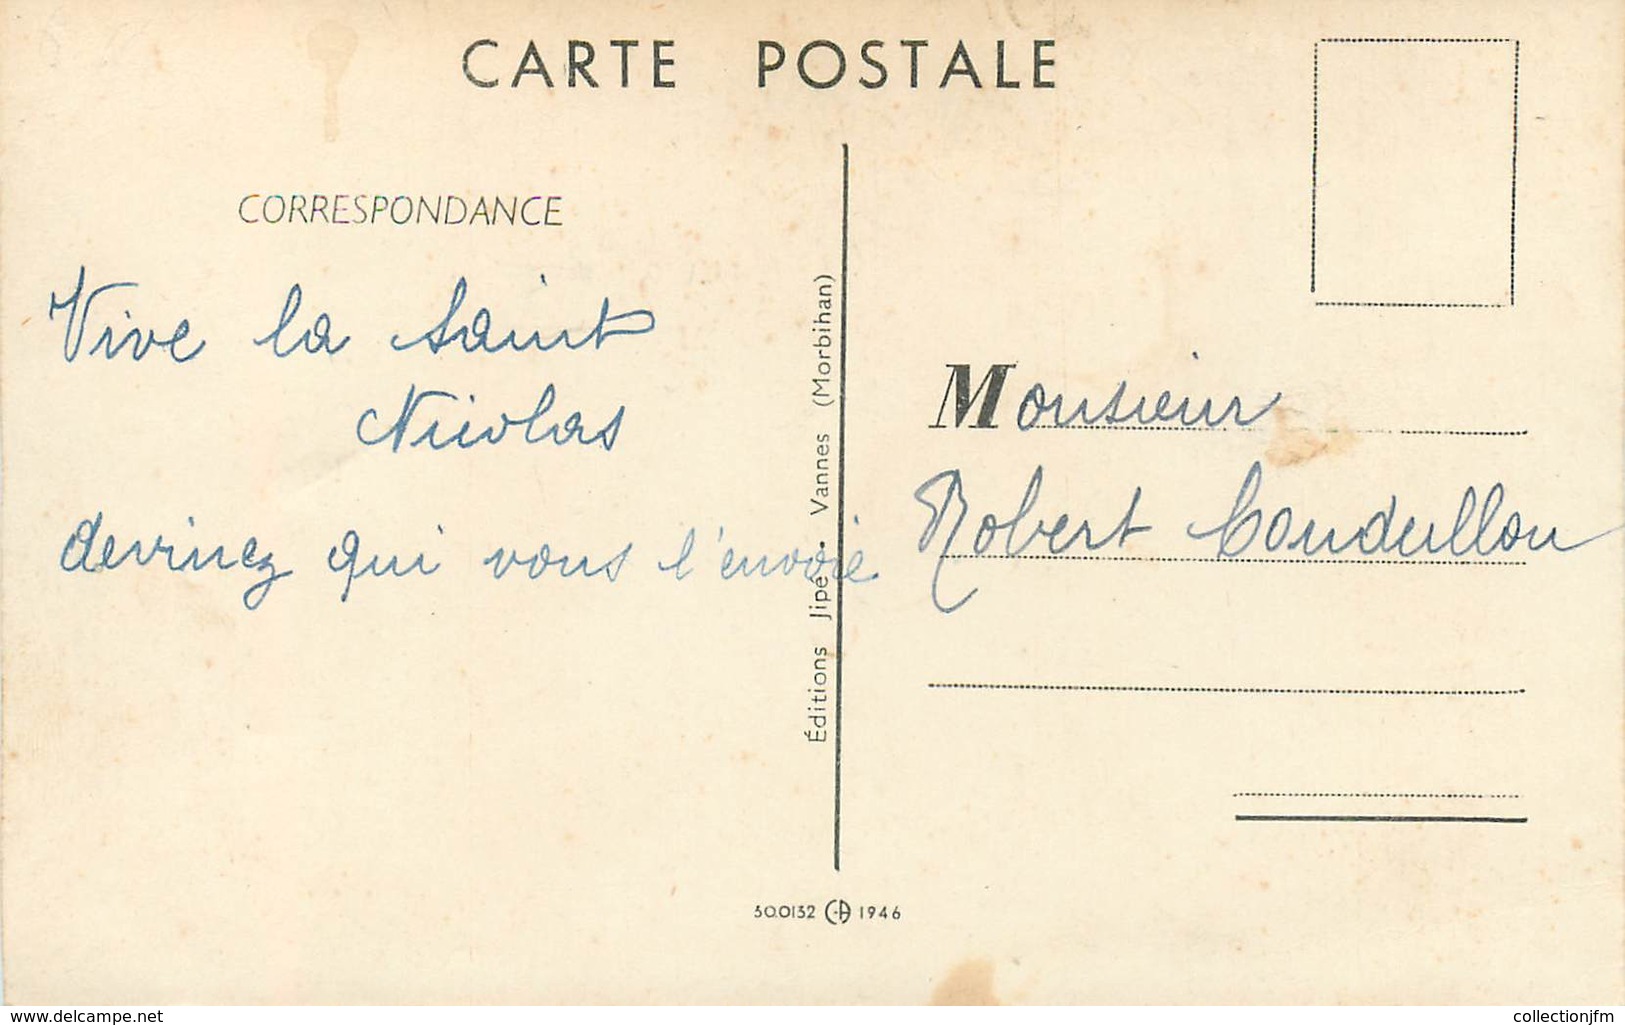 CARTE POSTALE
CORRESPONDANCE
Vive la Saint
Nicolas
devinez qui vous l'envoie
Éditions Jipé - Vannes (Morbihan)
Monsieur
Robert Coudullou
30.0132 C-A 1946
www.delcampe.net
collectionjfm